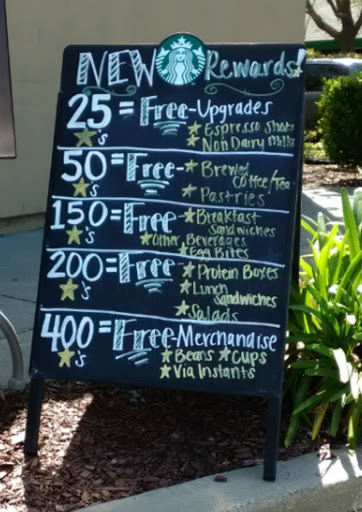 NEW Rewards!
25 = Free - Upgrades
★'s ★Espresso Shots
★Non Dairy Milks
50 = Free - ★Brewed
Coffee/Tea
★'s ★Pastries
150 = Free - ★Breakfast
Sandwiches
★'s ★Other Beverages
★Egg Bites
200 = Free - ★Protein Boxes
★'s ★Lunch
Sandwiches
★Salads
400 = Free - Merchandise
★'s ★Beans ★Cups
★Via Instants